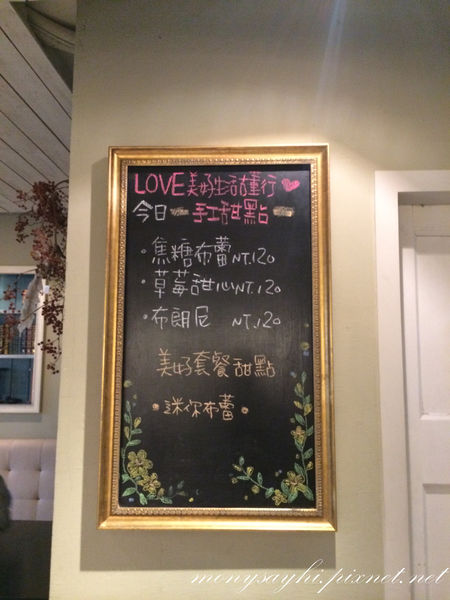 LOVE美好生活進行
今日 手工甜點
·焦糖布蕾 NT.120
·草莓甜心 NT.120
·布朗尼 NT.120
美好套餐甜點
·迷你布蕾·
monysayhi.pixnet.net